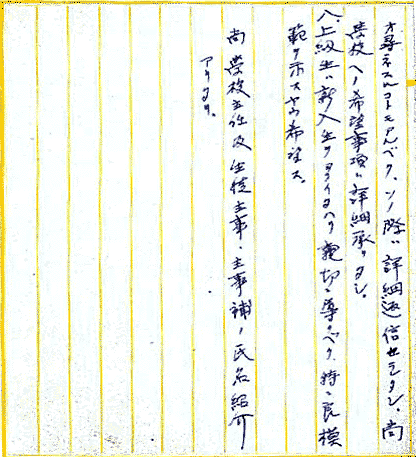 オ尋ネスルコトモアルベク、ソノ際ハ詳細返信セラレタシ、尚
學校ヘノ希望事項ハ詳細承リタシ。
八、上級生ハ新入生ヲヨクイタハリ親切ニ導クベク、特ニ良模
範ヲ示スヤウ希望ス。
尚學校主任及生徒主事、主事補ノ氏名紹介
アリタリ。